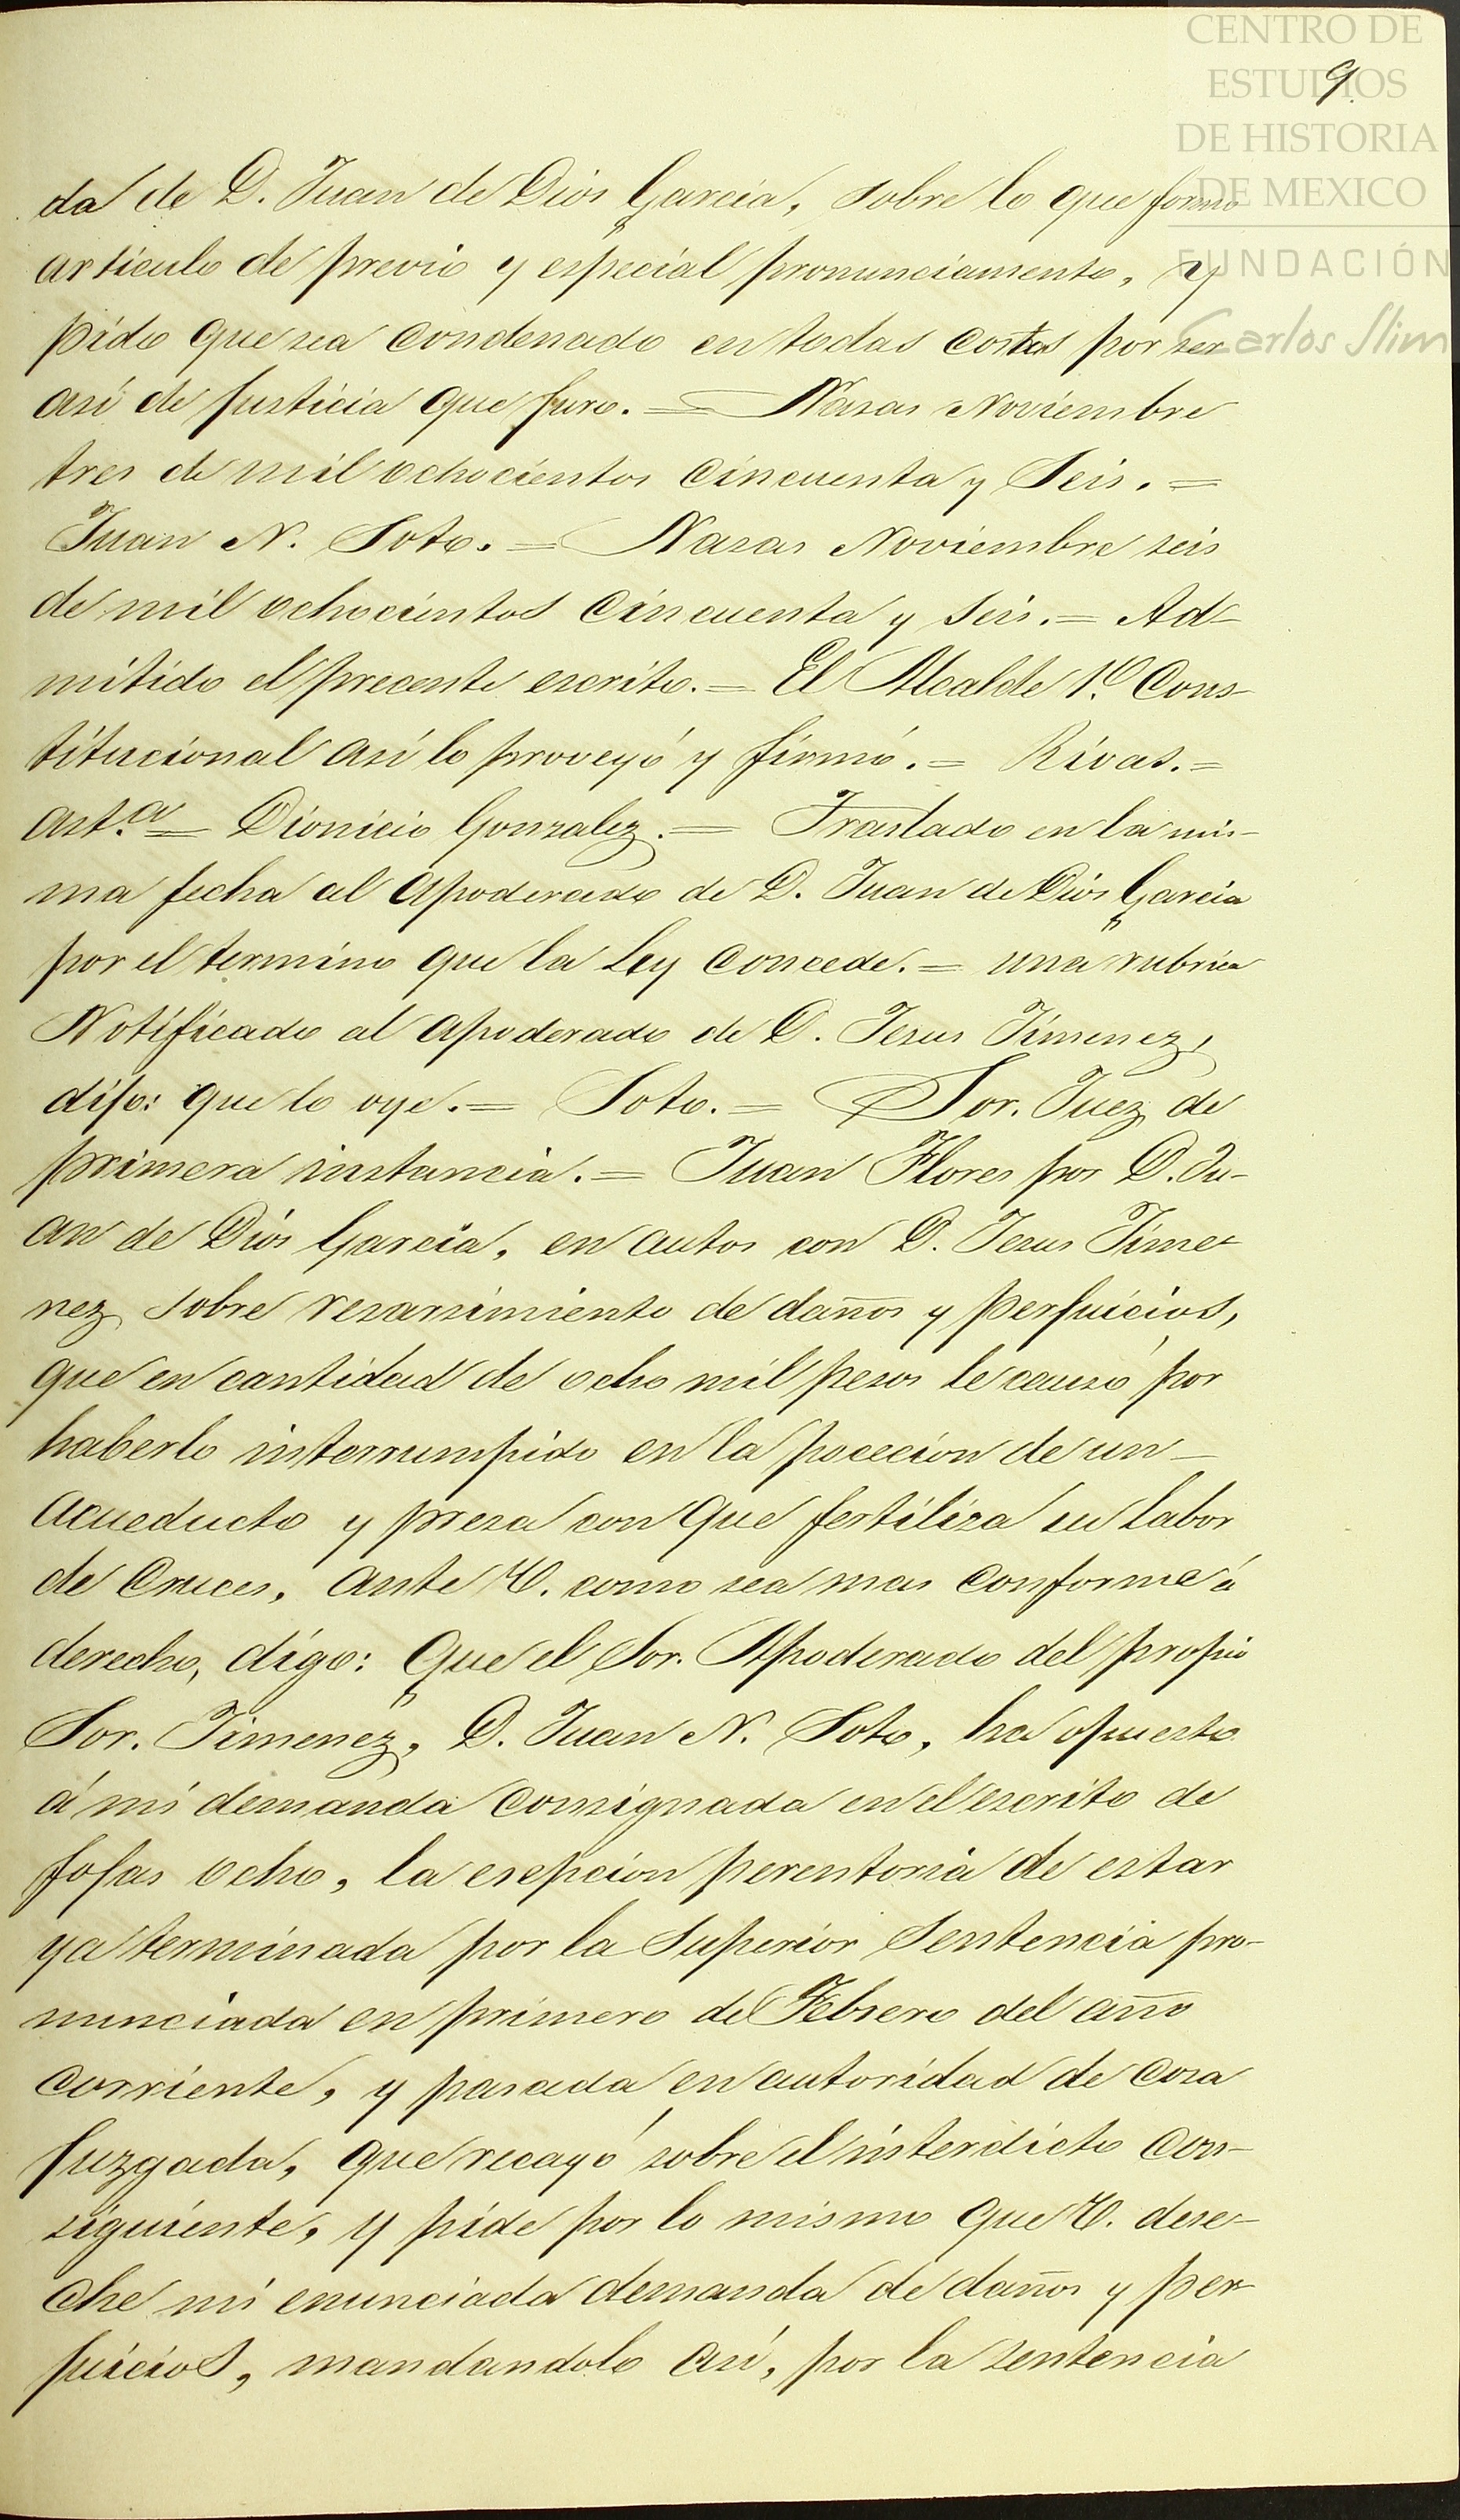 CENTRO DE
ESTUDIOS
DE HISTORIA
DE MEXICO
FUNDACIÓN
Carlos Slim
9.
da de D. Juan de Dios Garcia, sobre lo que formo
articulo de previo y especial pronunciamento, y
pido que sea condenado en todas costas por ser
así de justicia que juro. = Nasas Noviembre
tres de mil ochocientos cincuenta y Seis. =
Juan N. Soto. = Nasas Noviembre seis
de mil ochocientos cincuenta y seis. = Ad-
mitido el precente escrito. = El Alcalde 1º Cons-
titucional así lo proveyó y firmó. = Rivas. =
Ast.ª = Dionicio Gonzalez. = Traslado en la mis-
ma fecha al Apoderado de D. Juan de Dios Garcia
por el termino que la Ley concede. = una rubrica
Notificado al apoderado de D. Jesus Jimenez,
dijo: que lo oye. = Soto. = Sor. Juez de
primera instancia. = Juan Flores por D. Ju-
an de Dios Garcia, en autos con D. Jesus Jime-
nez sobre resarsimiento de daños y perjuicios,
que en cantidad de ocho mil pesos le causó por
haberlo interrumpido en la poceción de un-
acueducto y presa con que fertiliza su labor
de Cruces, ante V. como sea mas conforme á
derecho, digo: Que el Sor. Apoderado del propio
Sor. Jimenez, D. Juan N. Soto, ha opuesto
á mi demanda consignada en el escrito de
fojas ocho, la esepcion perentoria de estar
ya terminada por la Superior Sentencia pro-
nunciada en primero de Febrero del año
corriente, y pasada en autoridad de cosa
juzgada, que recayó sobre el interdicto con-
siguiente, y pide por lo mismo que V. dese-
che mi enunciada demanda de daños y per-
juicios, mandandolo así, por la sentencia